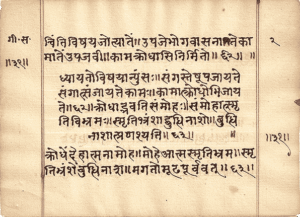 गी॰स॰ २
चित्तिविषयजोत्याते॥उपजेभोगवासनातेका
माते॥उपजवी॥कामक्रोधासिनिर्मिते॥६२॥
॥३१॥
ध्यायतोविषयान्पुंसः॥संगस्तेषूपजायते
संगात्संजायतेकामः॥कामात्क्रोधोभिजा
यते॥६२॥क्रोधाद्भवतिसंमोहः॥संमोहात्स्मृ
तिविभ्रमः॥स्मृतिभ्रंशाद्बुद्धिनाशो॥बुद्धि
॥३१॥
नाशात्प्रणश्यति॥६३॥
क्रोधेंदेहात्मनामोह॥मोहेआत्मस्मृतिभ्रम॥स्मृ
तिभ्रंशेबुद्धिनाश॥मगतोमूढपूर्ववत्॥६३॥